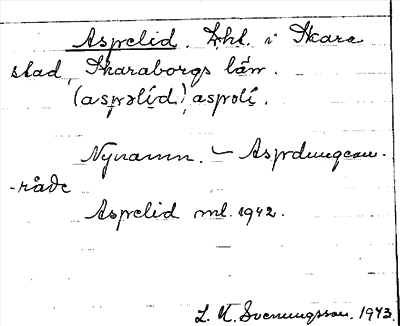 Aspelid. Lht. i Skara
stad, Skaraborgs län.
(aspəlíd), aspəlí.
Nynamn. – Aspdungeom-
-råde
Aspelid ml. 1942.
L. N. Svenungsson. 1943.